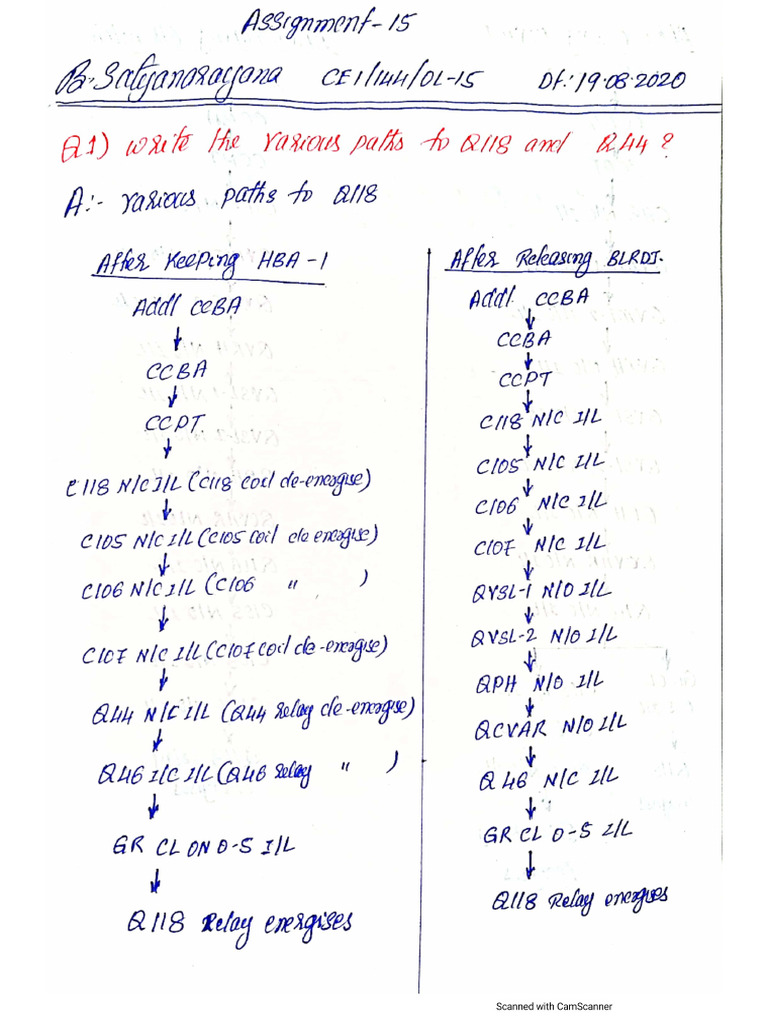 Assignment-15
B. Satyanarayana CE1/144/OL-15 Dt:19.08.2020
Q1) Write the various paths to Q118 and Q44?
A:- various paths to Q118
After Keeping HBA-1
Addl CCBA
CCBA
CCPT
C118 N/C I/L (C118 coil de-energise)
C105 N/C I/L (C105 coil de energise)
C106 N/C I/L (C106 " )
C107 N/C I/L (C107 coil de-energise)
Q44 N/C I/L (Q44 Relay de-energise)
Q46 I/C I/L (Q46 Relay " )
GR CL ON 0-5 I/L
Q118 Relay energises
After Releasing BLRDJ.
Addl. CCBA
CCBA
CCPT
C118 N/C I/L
C105 N/C I/L
C106 N/C I/L
C107 N/C I/L
QVSL-1 N/O I/L
QVSL-2 N/O I/L
QPH N/O I/L
QCVAR N/O I/L
Q46 N/C I/L
GR CL 0-5 I/L
Q118 Relay energises
Scanned with CamScanner